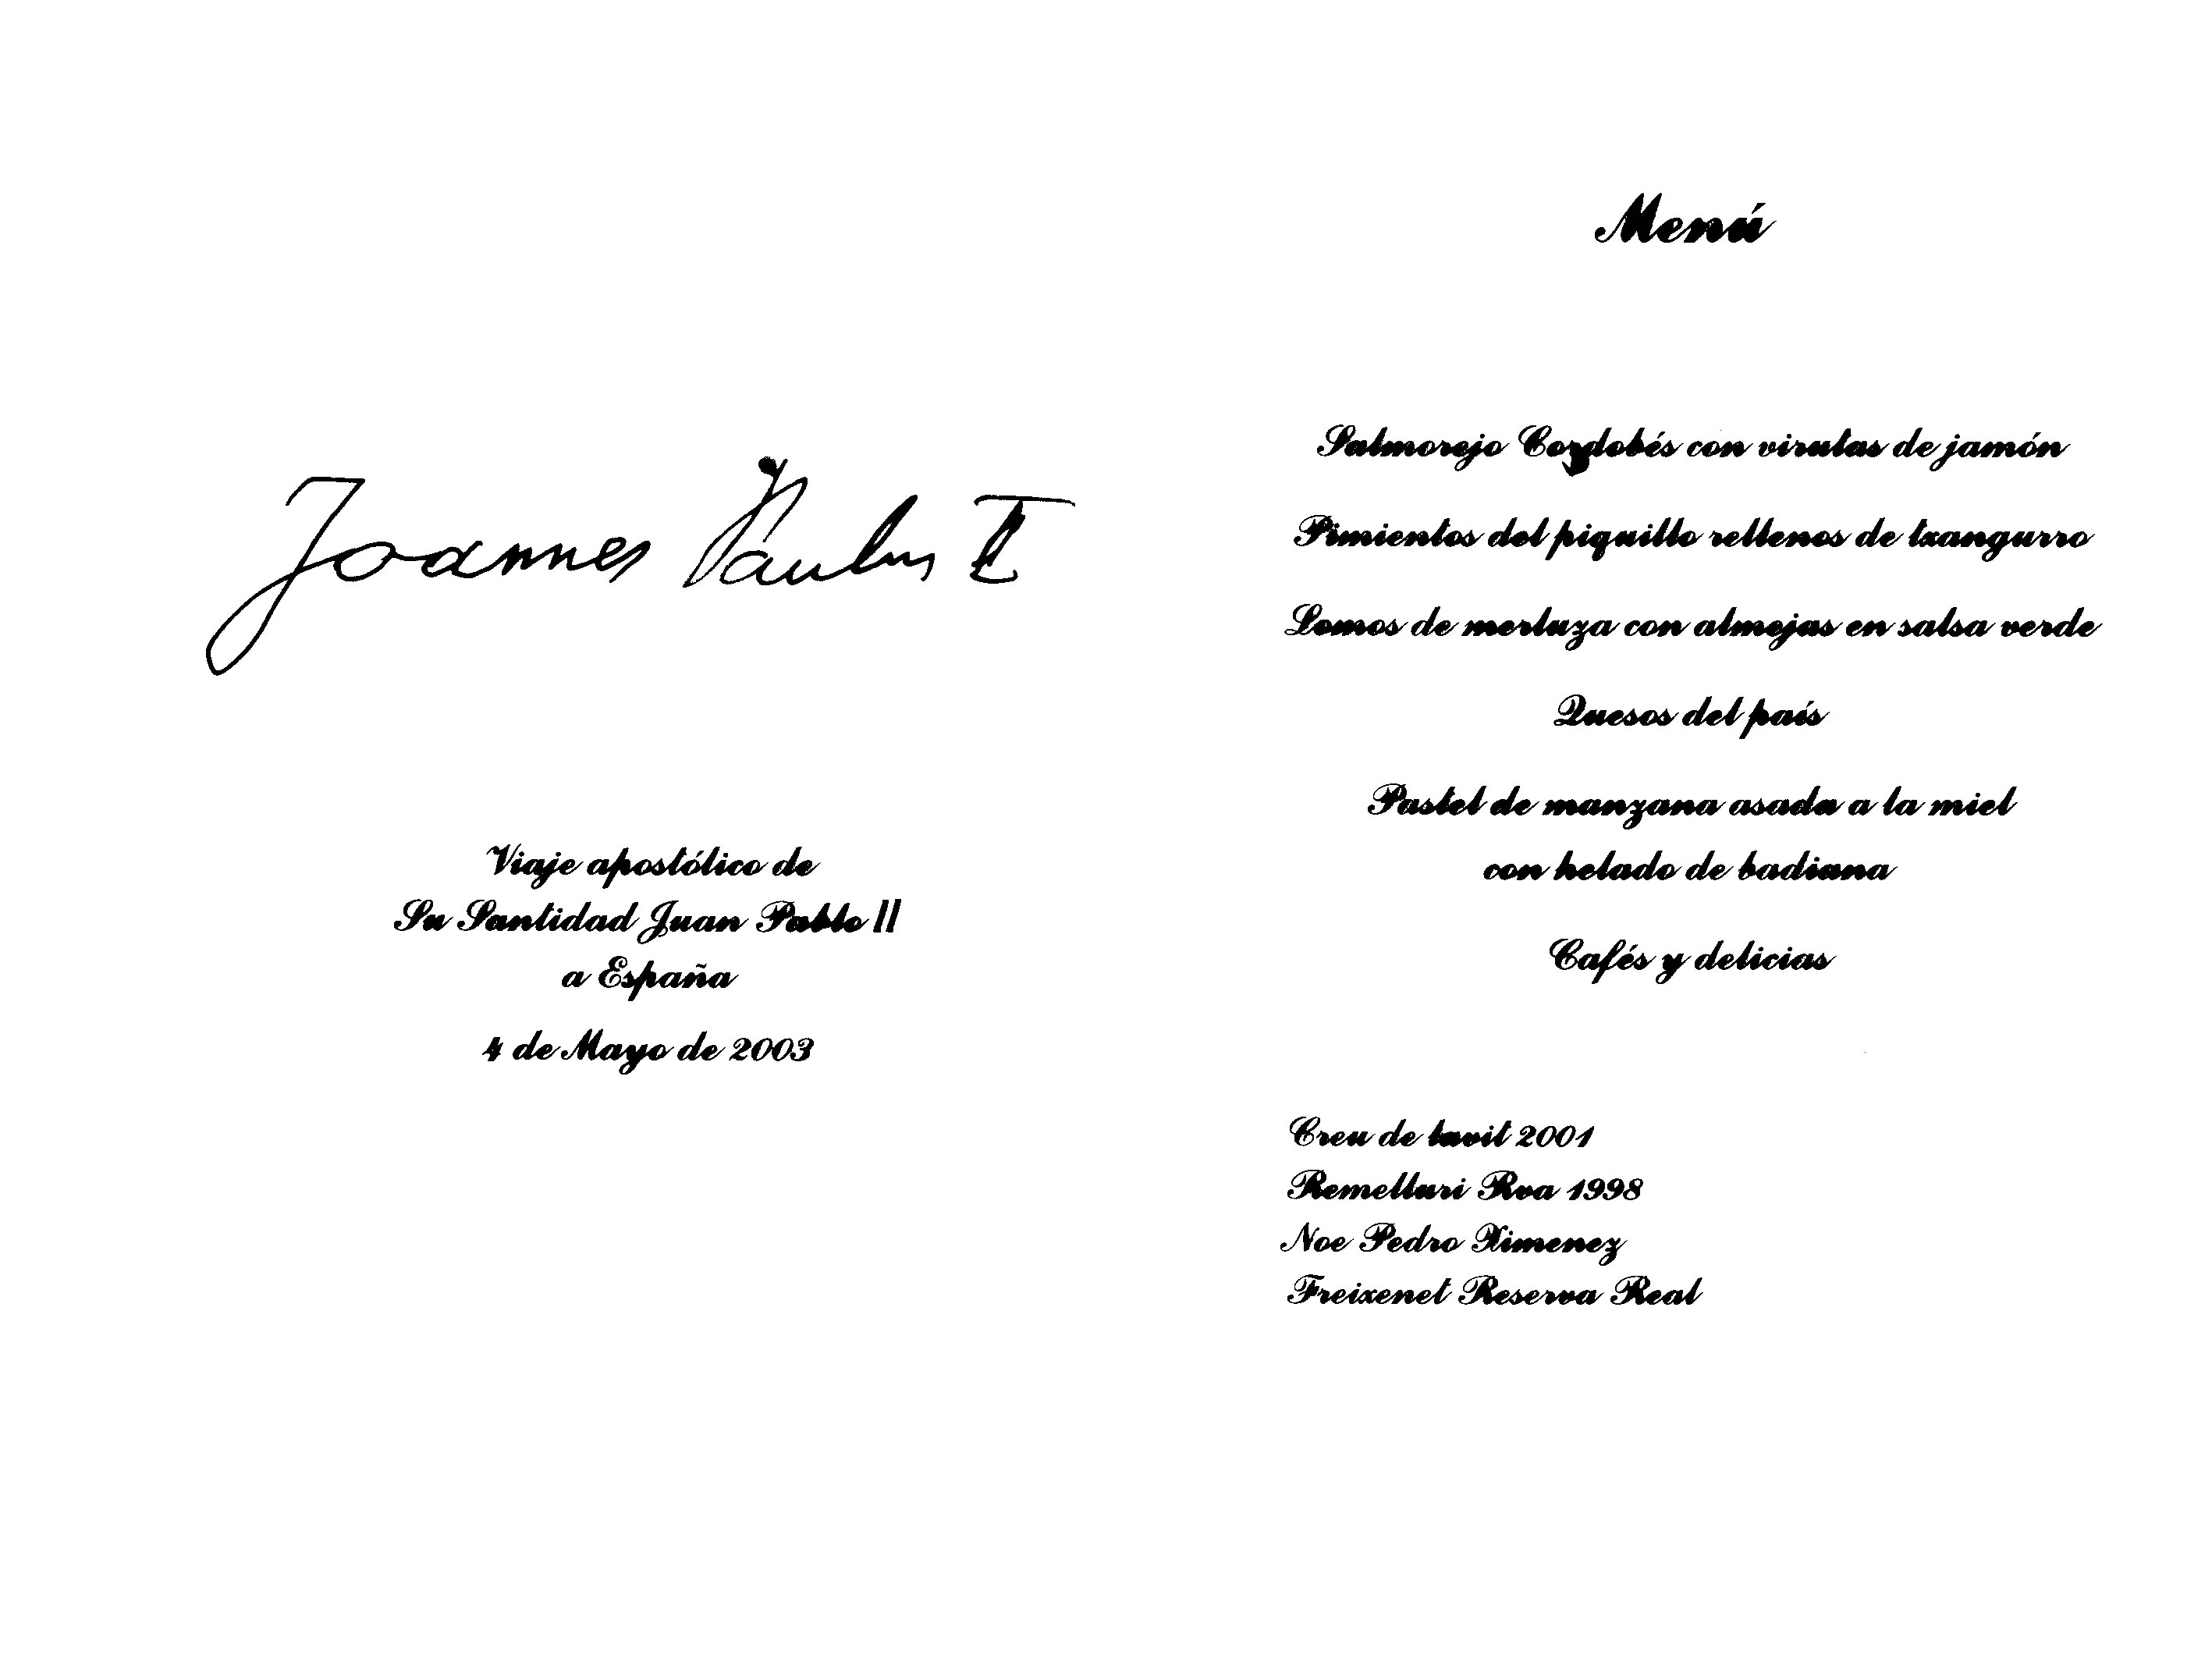 Joannes Paulus II
Viaje apostólico de
Su Santidad Juan Pablo II
a España
4 de Mayo de 2003
Menú
Salmorejo Cordobés con virutas de jamón
Pimientos del piquillo rellenos de txangurro
Lomos de merluza con almejas en salsa verde
Quesos del país
Pastel de manzana asada a la miel
con helado de badiana
Cafés y delicias
Creu de lavit 2001
Remelluri Rva 1998
Noe Pedro Ximenez
Freixenet Reserva Real